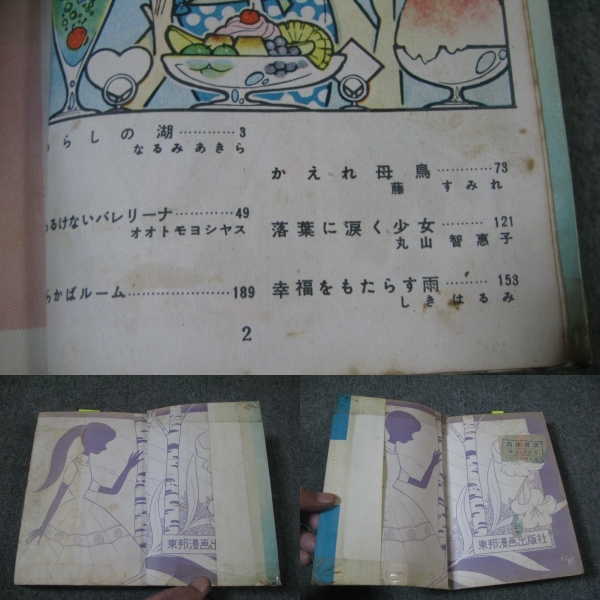 らしの湖…………3
なるみあきら
るけないバレリーナ…………49
オオトモヨシヤス
かばルーム………………189
かえれ母鳥…………73
藤すみれ
落葉に涙く少女………121
丸山智惠子
幸福をもたらす雨………153
しきはるみ
2
東邦漫画出
東邦漫画出版社